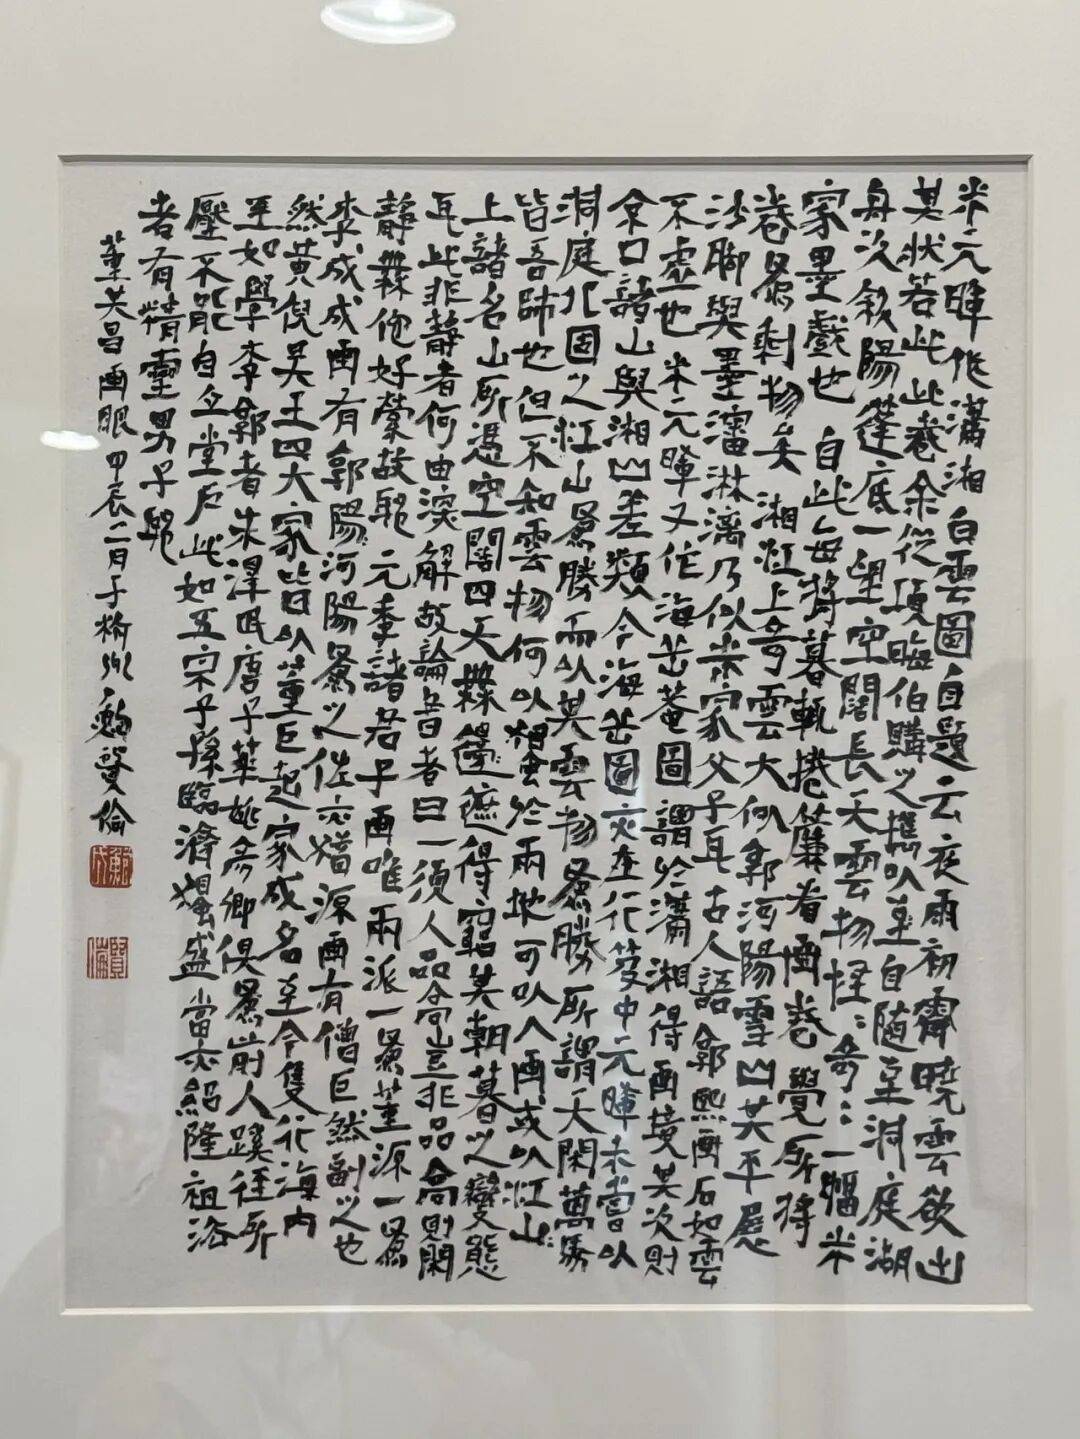 米元暉作瀟湘白雲圖自題云夜雨初霽曉雲欲出
其狀若此此卷余從項晦伯購之攜以至自隨至洞庭湖
舟次斜陽蓬底一望空闊長天雲物怪:奇:一幅米
家墨戲也 自此每將暮輒捲簾看畫卷 覺所將
卷爲剩物矣 湘江上奇雲大似郭河陽雪山其平展
沙脚與墨瀋淋漓乃似米家父子耳古人語 郭熙畫石如雲
不虛也 米元暉又作海岳菴圖謂於瀟湘得畫境其次則
京口諸山與湘山差類今海岳圖亦在行笈中元暉未嘗以
洞庭北固之江山爲勝而以其雲物爲勝所謂天閑萬馬
皆吾師也但不知雲物何以獨於兩地可以入畫或以江山
上諸名山所憑空闊四天無邊遮得窮其朝暮之變態
耳此非靜者何由深解故論書者曰一須人品高豈非品高則閑
靜無他好縈故耶 元季諸君子畫唯兩派一爲董源一爲
李成成畫有郭陽河陽爲之佐亦猶源畫有僧巨然副之也
然黃倪吳王四大家皆以董巨起家成名至今隻行海内
至如學李郭者朱澤民唐子華姚彥卿俱爲前人蹊徑所
壓不能自立堂戶此如五宗子孫臨濟獨盛當亦紹隆祖法
者有精靈男子耶
董其昌畫眼甲辰二月子